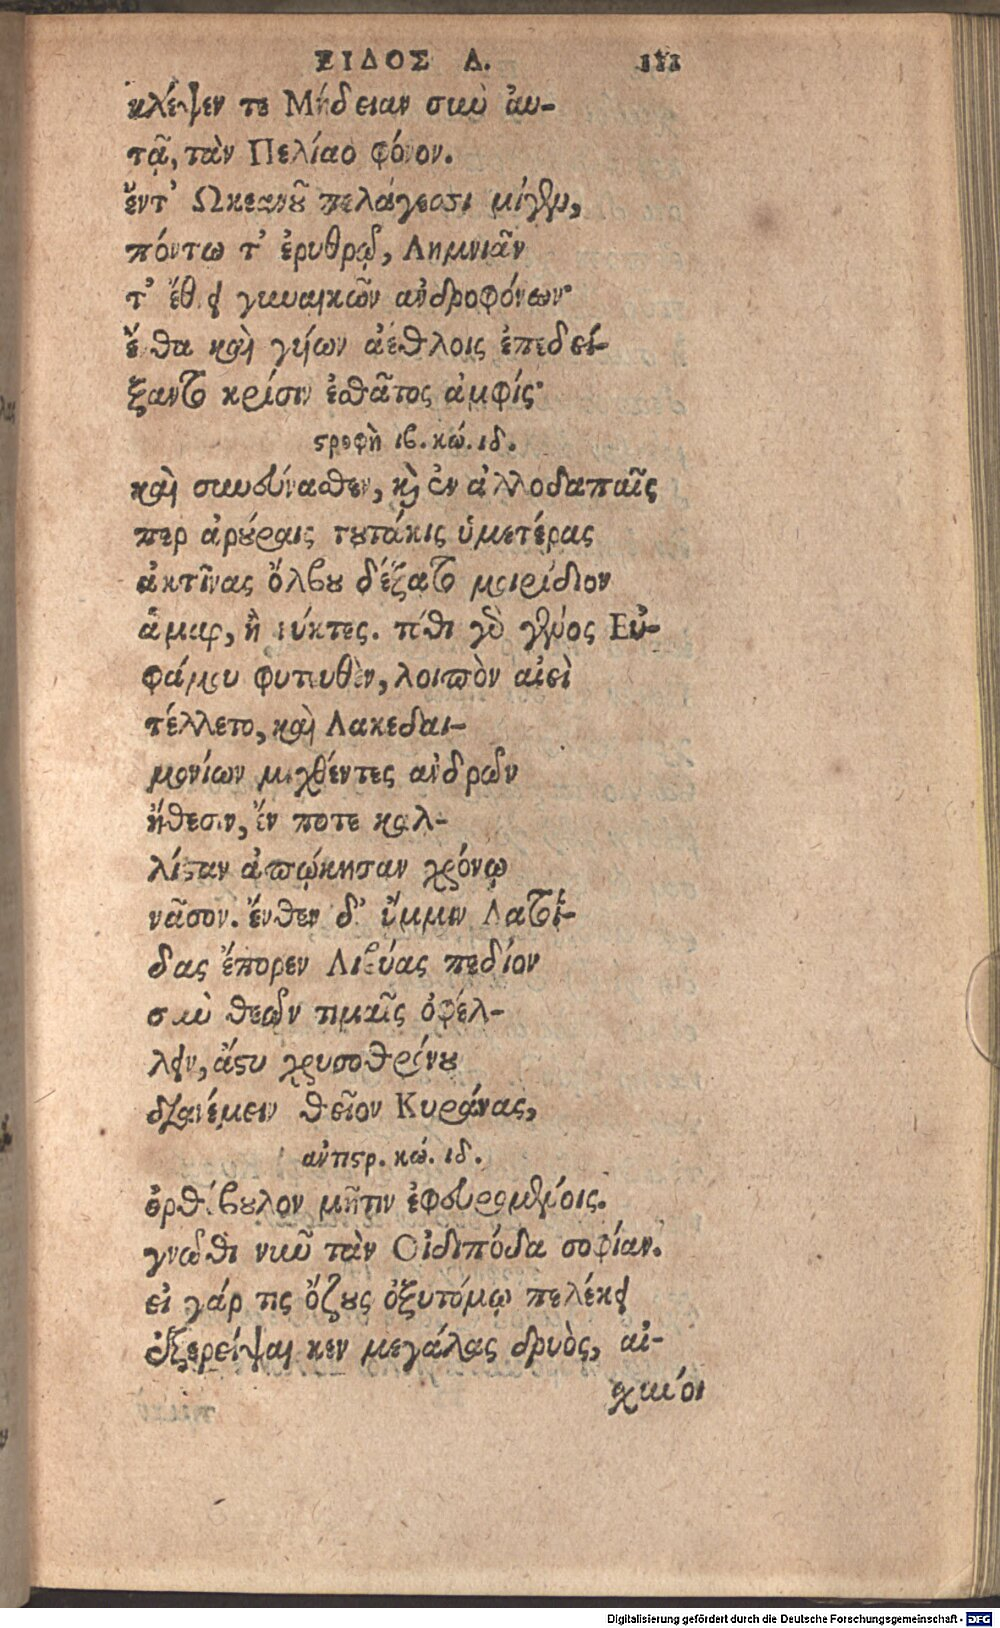 ΕΙΔΟΣ Δ. 111
κλέψεν τε Μήδειαν σὺν αὐ-
τᾷ, τὰν Πελίαο φόνον.
ἔντ' Ὠκεανοῦ πελάγεσσι μίγεν,
πόντῳ τ' ἐρυθρῷ, Λημνιᾶν
τ' ἔθνει γυναικῶν ἀνδροφόνων·
ἔνθα καὶ γυίων ἀέθλοις ἐπεδεί-
ξαντο κρίσιν ἐσθᾶτος ἀμφίς·
στροφὴ ιβ. κώ. ιδ.
καὶ συνεύνασθεν, καὶ ἐν ἀλλοδαπαῖς
περ ἀρούραις τουτάκις ὑμετέρας
ἀκτῖνας ὄλβου δέξατο μοιρίδιον
ἆμαρ, ἢ νύκτες. τόθι γὰρ γένος Εὐ-
φάμου φυτευθὲν, λοιπὸν αἰεὶ
τέλλετο, καὶ Λακεδαι-
μονίων μιχθέντες ἀνδρῶν
ἤθεσιν, ἔν ποτε καλ-
λίσταν ἀπῴκησαν χρόνῳ
νᾶσον. ἔνθεν δ' ὔμμιν Λατοΐ-
δας ἔπορεν Λιβύας πεδίον
σὺν θεῶν τιμαῖς ὀφέλ-
λειν, ἄστυ χρυσοθρόνου
διανέμειν θεῖον Κυράνας,
ἀντιστρ. κώ. ιδ.
ὀρθόβουλον μῆτιν ἐφευρομένοις.
γνῶθι νῦν τὰν Οἰδιπόδα σοφίαν.
εἰ γάρ τις ὄζους ὀξυτόμῳ πελέκει
ἐξερείψαι κεν μεγάλας δρυὸς, αἰ-
σχύνοι
Digitalisierung gefördert durch die Deutsche Forschungsgemeinschaft - DFG